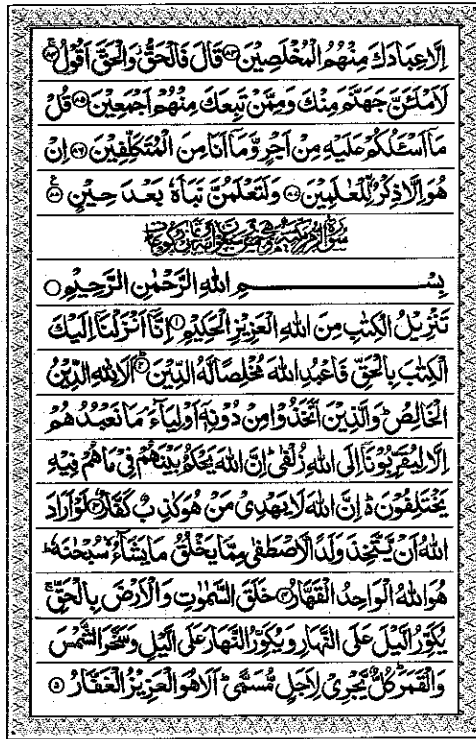 اِلَّا عِبَادَكَ مِنْهُمُ الْمُخْلَصِيْنَ ۝۸۳ قَالَ فَالْحَقُّ وَالْحَقَّ اَقُوْلُ ۝۸۴
لَاَمْلَئَنَّ جَهَنَّمَ مِنْكَ وَمِمَّنْ تَبِعَكَ مِنْهُمْ اَجْمَعِيْنَ ۝۸۵ قُلْ
مَاۤ اَسْـَٔلُكُمْ عَلَيْهِ مِنْ اَجْرٍ وَّمَاۤ اَنَا مِنَ الْمُتَكَلِّفِيْنَ ۝۸۶ اِنْ
هُوَ اِلَّا ذِكْرٌ لِّلْعٰلَمِيْنَ ۝۸۷ وَلَتَعْلَمُنَّ نَبَاَهٗ بَعْدَ حِيْنٍ ۝۸۸
سورة الزمر مكية وهي خمس وسبعون اية وثمان ركوعات
بِسْمِ اللهِ الرَّحْمٰنِ الرَّحِيْمِ ۝
تَنْزِيْلُ الْكِتٰبِ مِنَ اللهِ الْعَزِيْزِ الْحَكِيْمِ ۝۱ اِنَّاۤ اَنْزَلْنَاۤ اِلَيْكَ
الْكِتٰبَ بِالْحَقِّ فَاعْبُدِ اللهَ مُخْلِصًا لَّهُ الدِّيْنَ ۝۲ اَلَا لِلّٰهِ الدِّيْنُ
الْخَالِصُ ؕ وَالَّذِيْنَ اتَّخَذُوْا مِنْ دُوْنِهٖۤ اَوْلِيَآءَ ۘ مَا نَعْبُدُهُمْ
اِلَّا لِيُقَرِّبُوْنَاۤ اِلَى اللهِ زُلْفٰى ؕ اِنَّ اللهَ يَحْكُمُ بَيْنَهُمْ فِيْ مَا هُمْ فِيْهِ
يَخْتَلِفُوْنَ ؕ اِنَّ اللهَ لَا يَهْدِيْ مَنْ هُوَ كٰذِبٌ كَفَّارٌ ۝۳ لَوْ اَرَادَ
اللهُ اَنْ يَّتَّخِذَ وَلَدًا لَّاصْطَفٰى مِمَّا يَخْلُقُ مَا يَشَآءُ ۙ سُبْحٰنَهٗ ؕ
هُوَ اللهُ الْوَاحِدُ الْقَهَّارُ ۝۴ خَلَقَ السَّمٰوٰتِ وَالْاَرْضَ بِالْحَقِّ ۚ
يُكَوِّرُ الَّيْلَ عَلَى النَّهَارِ وَيُكَوِّرُ النَّهَارَ عَلَى الَّيْلِ وَسَخَّرَ الشَّمْسَ
وَالْقَمَرَ ؕ كُلٌّ يَّجْرِيْ لِاَجَلٍ مُّسَمًّى ؕ اَلَا هُوَ الْعَزِيْزُ الْغَفَّارُ ۝۵